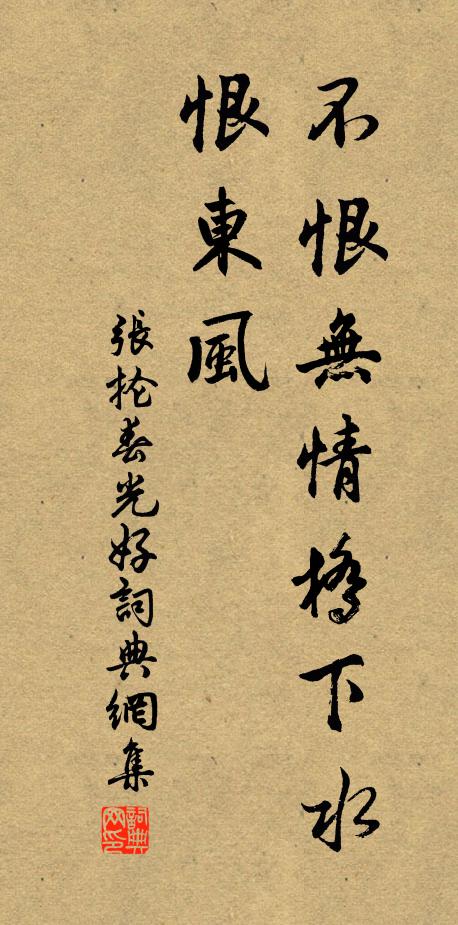 不恨無情橋下水
恨東風
張掄春光好詞典網集
詞典网印